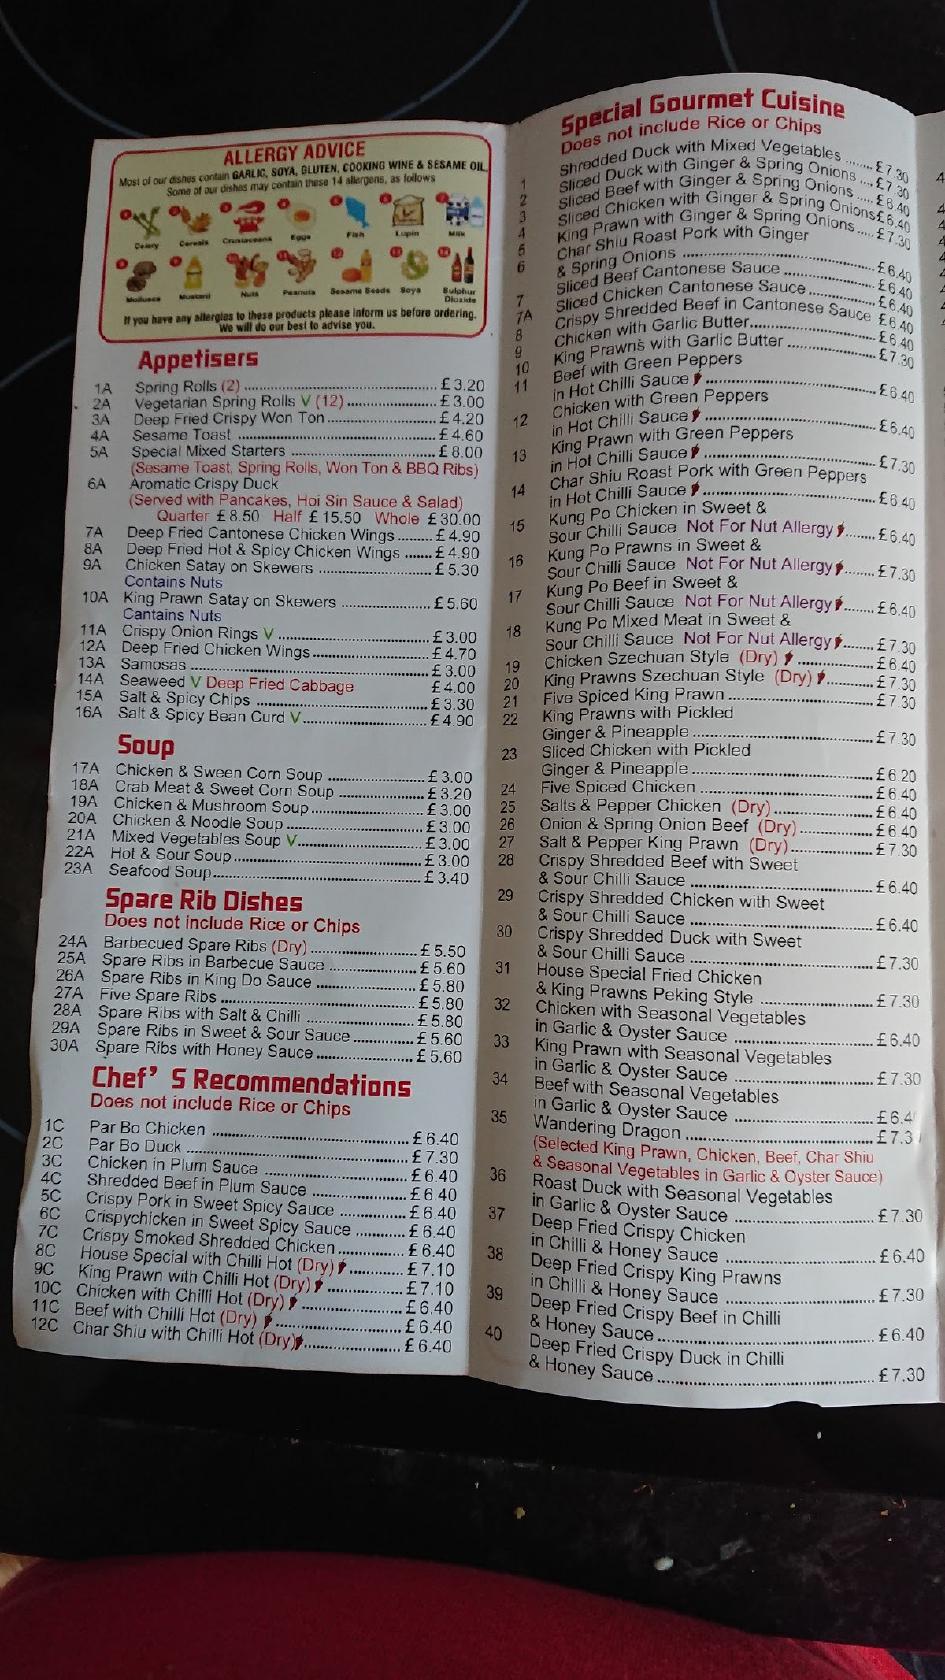 ALLERGY ADVICE
Most of our dishes contain GARLIC, SOYA, GLUTEN, COOKING WINE & SESAME OIL.
Some of our dishes may contain these 14 allergens, as follows
Celery Cereals Crustaceans Eggs Fish Lupin Milk
Molluscs Mustard Nuts Peanuts Sesame Seeds Soya Sulphur Dioxide
If you have any allergies to these products please inform us before ordering.
We will do our best to advise you.
Appetisers
1A Spring Rolls (2) £3.20
2A Vegetarian Spring Rolls V (12) £3.00
3A Deep Fried Crispy Won Ton £4.20
4A Sesame Toast £4.60
5A Special Mixed Starters £8.00
(Sesame Toast, Spring Rolls, Won Ton & BBQ Ribs)
6A Aromatic Crispy Duck
(Served with Pancakes, Hoi Sin Sauce & Salad)
Quarter £8.50 Half £15.50 Whole £30.00
7A Deep Fried Cantonese Chicken Wings £4.90
8A Deep Fried Hot & Spicy Chicken Wings £4.90
9A Chicken Satay on Skewers £5.30
Contains Nuts
10A King Prawn Satay on Skewers £5.60
Cantains Nuts
11A Crispy Onion Rings V £3.00
12A Deep Fried Chicken Wings £4.70
13A Samosas £3.00
14A Seaweed V Deep Fried Cabbage £4.00
15A Salt & Spicy Chips £3.30
16A Salt & Spicy Bean Curd V £4.90
Soup
17A Chicken & Sween Corn Soup £3.00
18A Crab Meat & Sweet Corn Soup £3.20
19A Chicken & Mushroom Soup £3.00
20A Chicken & Noodle Soup £3.00
21A Mixed Vegetables Soup V £3.00
22A Hot & Sour Soup £3.00
23A Seafood Soup £3.40
Spare Rib Dishes
Does not include Rice or Chips
24A Barbecued Spare Ribs (Dry) £5.50
25A Spare Ribs in Barbecue Sauce £5.60
26A Spare Ribs in King Do Sauce £5.80
27A Five Spare Ribs £5.80
28A Spare Ribs with Salt & Chilli £5.80
29A Spare Ribs in Sweet & Sour Sauce £5.60
30A Spare Ribs with Honey Sauce £5.60
Chef' S Recommendations
Does not include Rice or Chips
1C Par Bo Chicken £6.40
2C Par Bo Duck £7.30
3C Chicken in Plum Sauce £6.40
4C Shredded Beef in Plum Sauce £6.40
5C Crispy Pork in Sweet Spicy Sauce £6.40
6C Crispychicken in Sweet Spicy Sauce £6.40
7C Crispy Smoked Shredded Chicken £6.40
8C House Special with Chilli Hot (Dry) £7.10
9C King Prawn with Chilli Hot (Dry) £7.10
10C Chicken with Chilli Hot (Dry) £6.40
11C Beef with Chilli Hot (Dry) £6.40
12C Char Shiu with Chilli Hot (Dry) £6.40
Special Gourmet Cuisine
Does not include Rice or Chips
1 Shredded Duck with Mixed Vegetables £7.30
2 Sliced Duck with Ginger & Spring Onions £7.30
3 Sliced Beef with Ginger & Spring Onions £6.40
4 Sliced Chicken with Ginger & Spring Onions £6.40
5 King Prawn with Ginger & Spring Onions £7.30
6 Char Shiu Roast Pork with Ginger
& Spring Onions £6.40
7 Sliced Beef Cantonese Sauce £6.40
7A Sliced Chicken Cantonese Sauce £6.40
8 Crispy Shredded Beef in Cantonese Sauce £6.40
9 Chicken with Garlic Butter £6.40
10 King Prawns with Garlic Butter £7.30
11 Beef with Green Peppers
in Hot Chilli Sauce £6.40
12 Chicken with Green Peppers
in Hot Chilli Sauce £6.40
13 King Prawn with Green Peppers
in Hot Chilli Sauce £7.30
14 Char Shiu Roast Pork with Green Peppers
in Hot Chilli Sauce £6.40
15 Kung Po Chicken in Sweet &
Sour Chilli Sauce Not For Nut Allergy £6.40
16 Kung Po Prawns in Sweet &
Sour Chilli Sauce Not For Nut Allergy £7.30
17 Kung Po Beef in Sweet &
Sour Chilli Sauce Not For Nut Allergy £6.40
18 Kung Po Mixed Meat in Sweet &
Sour Chilli Sauce Not For Nut Allergy £7.30
19 Chicken Szechuan Style (Dry) £6.40
20 King Prawns Szechuan Style (Dry) £7.30
21 Five Spiced King Prawn £7.30
22 King Prawns with Pickled
Ginger & Pineapple £7.30
23 Sliced Chicken with Pickled
Ginger & Pineapple £6.20
24 Five Spiced Chicken £6.40
25 Salts & Pepper Chicken (Dry) £6.40
26 Onion & Spring Onion Beef (Dry) £6.40
27 Salt & Pepper King Prawn (Dry) £7.30
28 Crispy Shredded Beef with Sweet
& Sour Chilli Sauce £6.40
29 Crispy Shredded Chicken with Sweet
& Sour Chilli Sauce £6.40
30 Crispy Shredded Duck with Sweet
& Sour Chilli Sauce £7.30
31 House Special Fried Chicken
& King Prawns Peking Style £7.30
32 Chicken with Seasonal Vegetables
in Garlic & Oyster Sauce £6.40
33 King Prawn with Seasonal Vegetables
in Garlic & Oyster Sauce £7.30
34 Beef with Seasonal Vegetables
in Garlic & Oyster Sauce £6.4
35 Wandering Dragon £7.3
(Selected King Prawn, Chicken, Beef, Char Shiu
& Seasonal Vegetables in Garlic & Oyster Sauce)
36 Roast Duck with Seasonal Vegetables
in Garlic & Oyster Sauce £7.30
37 Deep Fried Crispy Chicken
in Chilli & Honey Sauce £6.40
38 Deep Fried Crispy King Prawns
in Chilli & Honey Sauce £7.30
39 Deep Fried Crispy Beef in Chilli
& Honey Sauce £6.40
40 Deep Fried Crispy Duck in Chilli
& Honey Sauce £7.30